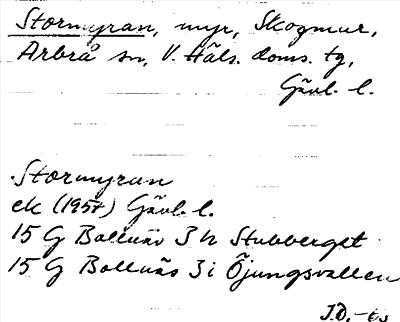 Stormyran, myr, Skogmur,
Arbrå sn, V. Häls. doms. tg,
Gävl. l.
Stormyran
ek (1957) Gävl. l.
15 G Bollnäs 3 h Stubberget
15 G Bollnäs 3 i Öjungsvallen
J.D. -63